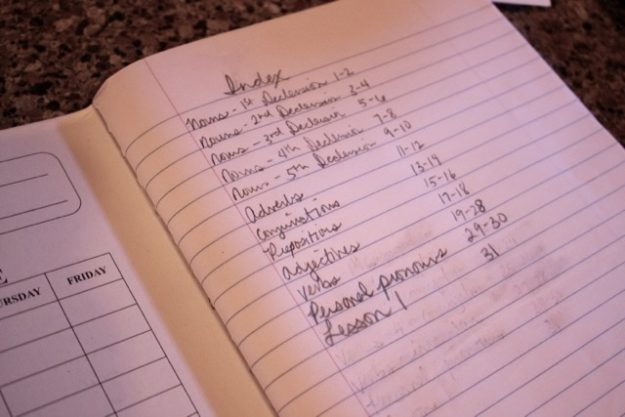 Index
Nouns - 1st Declension 1-2
Nouns - 2nd Declension 3-4
Nouns - 3rd Declension 5-6
Nouns - 4th Declension 7-8
Nouns - 5th Declension 9-10
Adverbs 11-12
Conjunctions 13-14
Prepositions 15-16
Adjectives 17-18
Verbs 19-28
Personal pronouns 29-30
Lesson 1 31
E
URSDAY FRIDAY